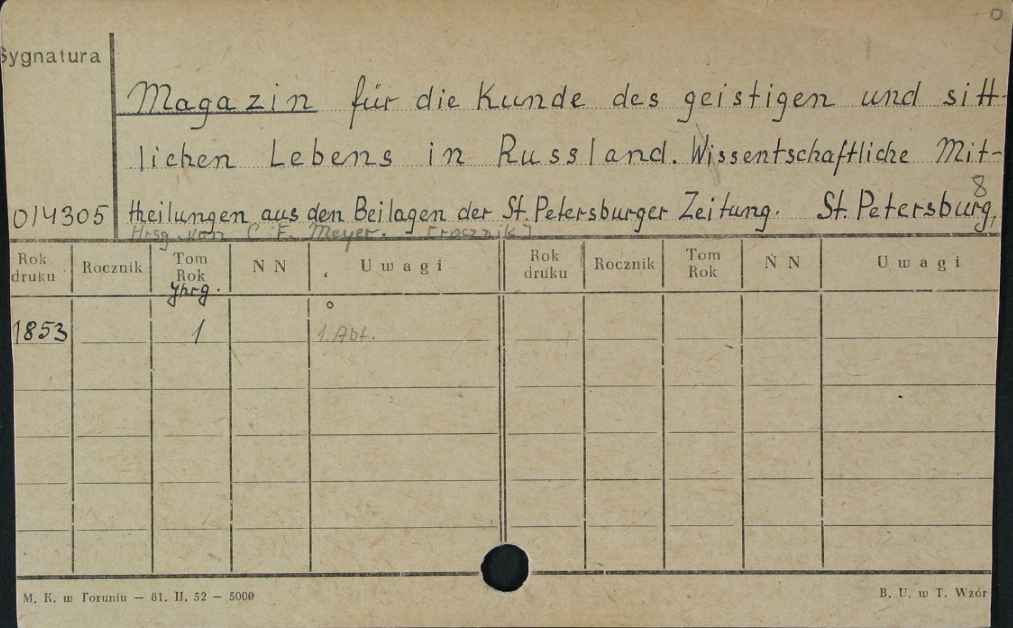 Sygnatura
Magazin für die Kunde des geistigen und sitt-
lichen Lebens in Russland. Wissentschaftliche Mit-
8
014305 theilungen aus den Beilagen der St. Petersburger Zeitung. St. Petersburg,
Hrsg. von C. F. Meyer. [rocznik]
Rok druku Rocznik Tom Rok N N Uwagi Rok druku Rocznik Tom Rok N N Uwagi
Jhrg.
1853 1 1. Abt.
M. K. w Toruniu — 61. II. 52 — 5000 B. U. w T. Wzór